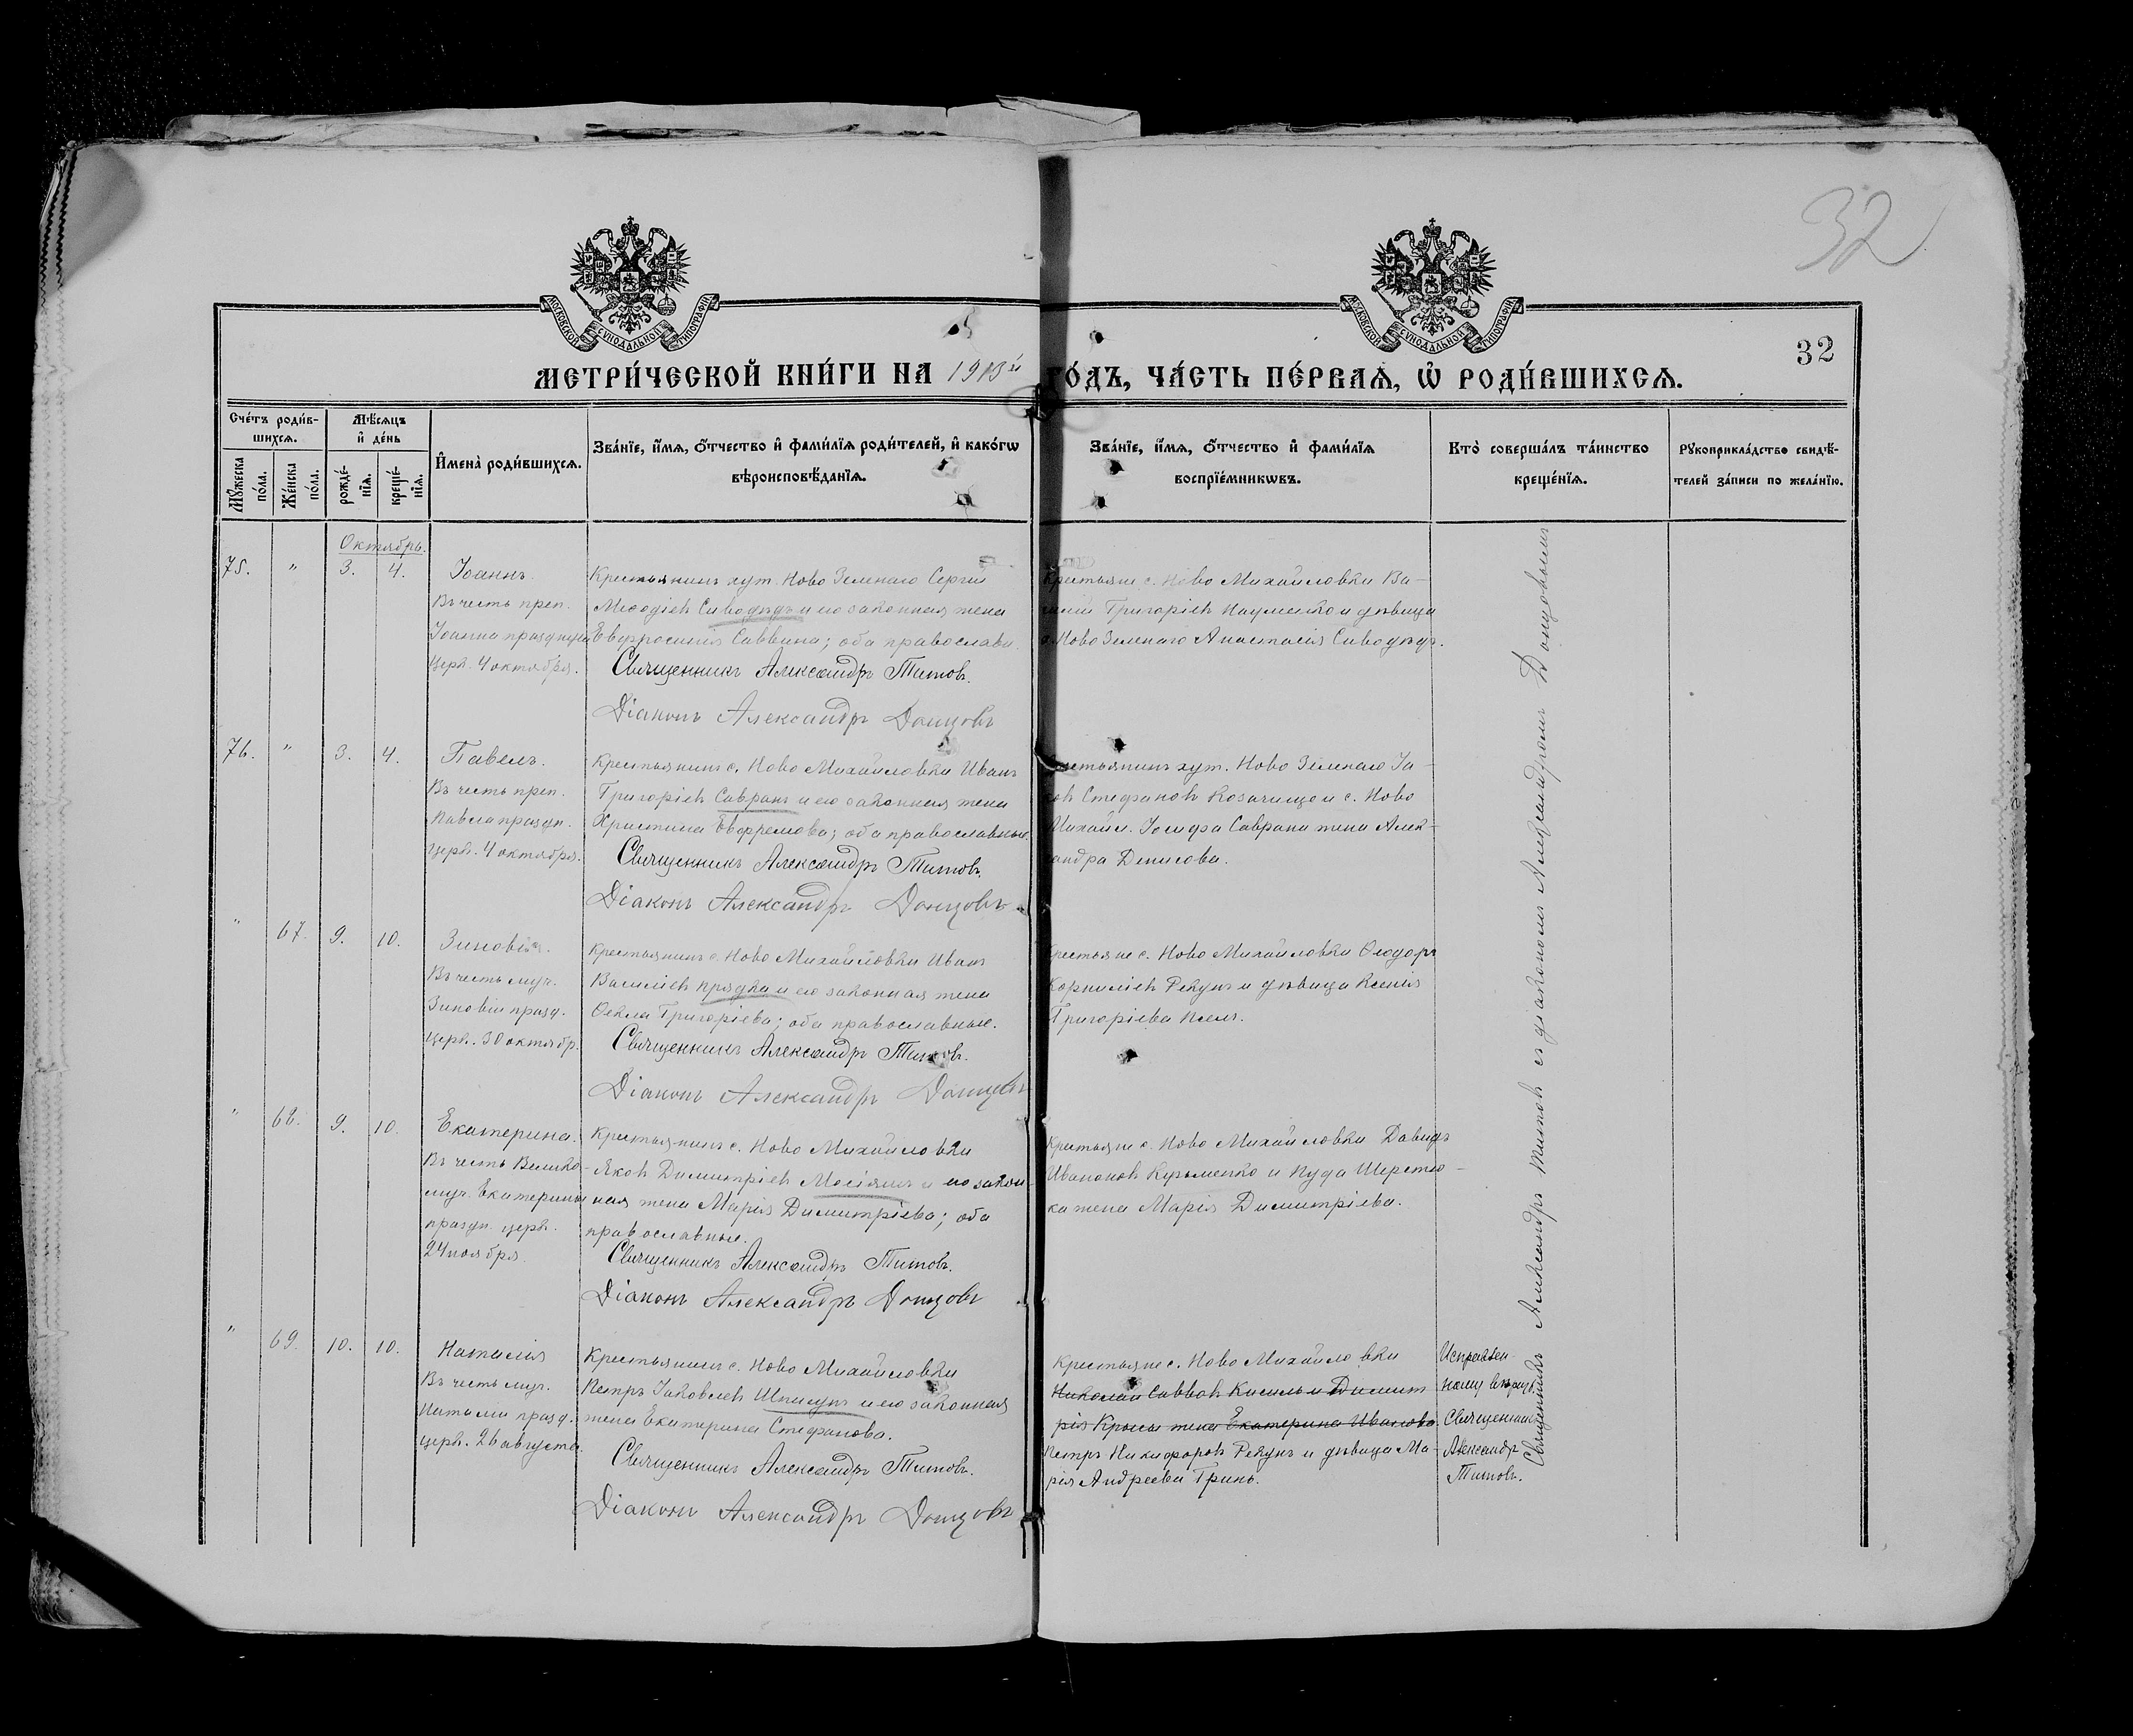 32
МОСКОВСКОЙ СУНОДАЛЬНОЙ ТИПОГРАФІИ
МОСКОВСКОЙ СУНОДАЛЬНОЙ ТИПОГРАФІИ
32
МЕТРИ́ЧЕСКОЙ КНИ́ГИ НА 1913й ГО́ДЪ, ЧА́СТЬ ПЕ́РВАѦ, Ѡ҆ РОДИ́ВШИХСѦ.
Сче́тъ роди́в-
шихсѧ.
Мꙋ́жеска по́ла.
Же́нска по́ла.
Мѣ́сѧцъ
и҆ де́нь
рожде́-
нїѧ.
креще́-
нїѧ.
И҆мена̀ роди́вшихсѧ.
Зва́нїе, и҆́мѧ, ѻ҆́тчество и҆ фами́лїѧ роди́телей, и҆ како́гѡ
вѣроисповѣ́данїѧ.
Зва́нїе, и҆́мѧ, ѻ҆́тчество и҆ фами́лїѧ
воспрїе́мникѡвъ.
Кто̀ соверша́лъ та́инство
креще́нїѧ.
Рꙋкоприкла́дство свидѣ́-
телей за́писи по жела́нїю.
Октябрь.
75. " 3. 4.
Іоаннъ.
Въ честь преп.
Іоанна празднуем.
церк. 4 октября.
Крестьянинъ хут. Ново Зеленаго Сергій
Меѳодіевъ Сиводѣдъ и его законная жена
Евфросинія Саввина; оба православн.
Священникъ Александръ Титовъ.
Діаконъ Александръ Донцовъ
Крестьяне с. Ново Михайловки Ва-
силій Григоріевъ Науменко и дѣвица
х. Ново Зеленаго Анастасія Сиводѣдъ.
76. " 3. 4.
Павелъ.
Въ честь преп.
Павла праздн.
церк. 4 октября.
Крестьянинъ с. Ново Михайловки Иванъ
Григоріевъ Савранъ и его законная жена
Христина Евфремова; оба православные.
Священникъ Александръ Титовъ.
Діаконъ Александръ Донцовъ
Крестьянинъ хут. Ново Зеленаго Іа-
ковъ Стефановъ Козачище и с. Ново
Михайл. Іосифа Саврана жена Алек-
андра Денисова.
" 67. 9. 10.
Зиновія.
Въ честь муч.
Зиновіи празд.
церк. 30 октябр.
Крестьянинъ с. Ново Михайловки Иванъ
Василіевъ Прядка и его законная жена
Ѳекла Григоріева; оба православные.
Священникъ Александръ Титовъ.
Діаконъ Александръ Донцовъ
Крестьяне с. Ново Михайловки Ѳеодоръ
Корниліевъ Рекунъ и дѣвица Ксенія
Григоріева
" 68. 9. 10.
Екатерина.
Въ честь Велико-
муч. Екатерины
праздн. церк.
24 ноября.
Крестьянинъ с. Ново Михайловки
Яковъ Димитріевъ и его закон-
ная жена Марія Димитріева; оба
православные.
Священникъ Александръ Титовъ.
Діаконъ Александръ Донцовъ
Крестьяне с. Ново Михайловки Давидъ
Ивановъ Кузьменко и Іуда Шерстю-
ка жена Марія Димитріева.
" 69. 10. 10.
Наталія
Въ честь муч.
Наталіи празд.
церк. 26 августа.
Крестьянинъ с. Ново Михайловки
Петръ Іаковлевъ и его законная
жена Екатерина Стефанова.
Священникъ Александръ Титовъ.
Діаконъ Александръ Донцовъ
Крестьяне с. Ново Михайловки
Николай Саввовъ Кисиль и Димит
рія Крысы жена Екатерина Иванова.
Петръ Никифоровъ Рекунъ и дѣвица Ма-
рія Андреева Гринь.
Исправлен-
ному вѣрить.
Священникъ
Александръ
Титовъ.
Священникъ Александръ Титовъ съ діакономъ Александромъ Донцовымъ